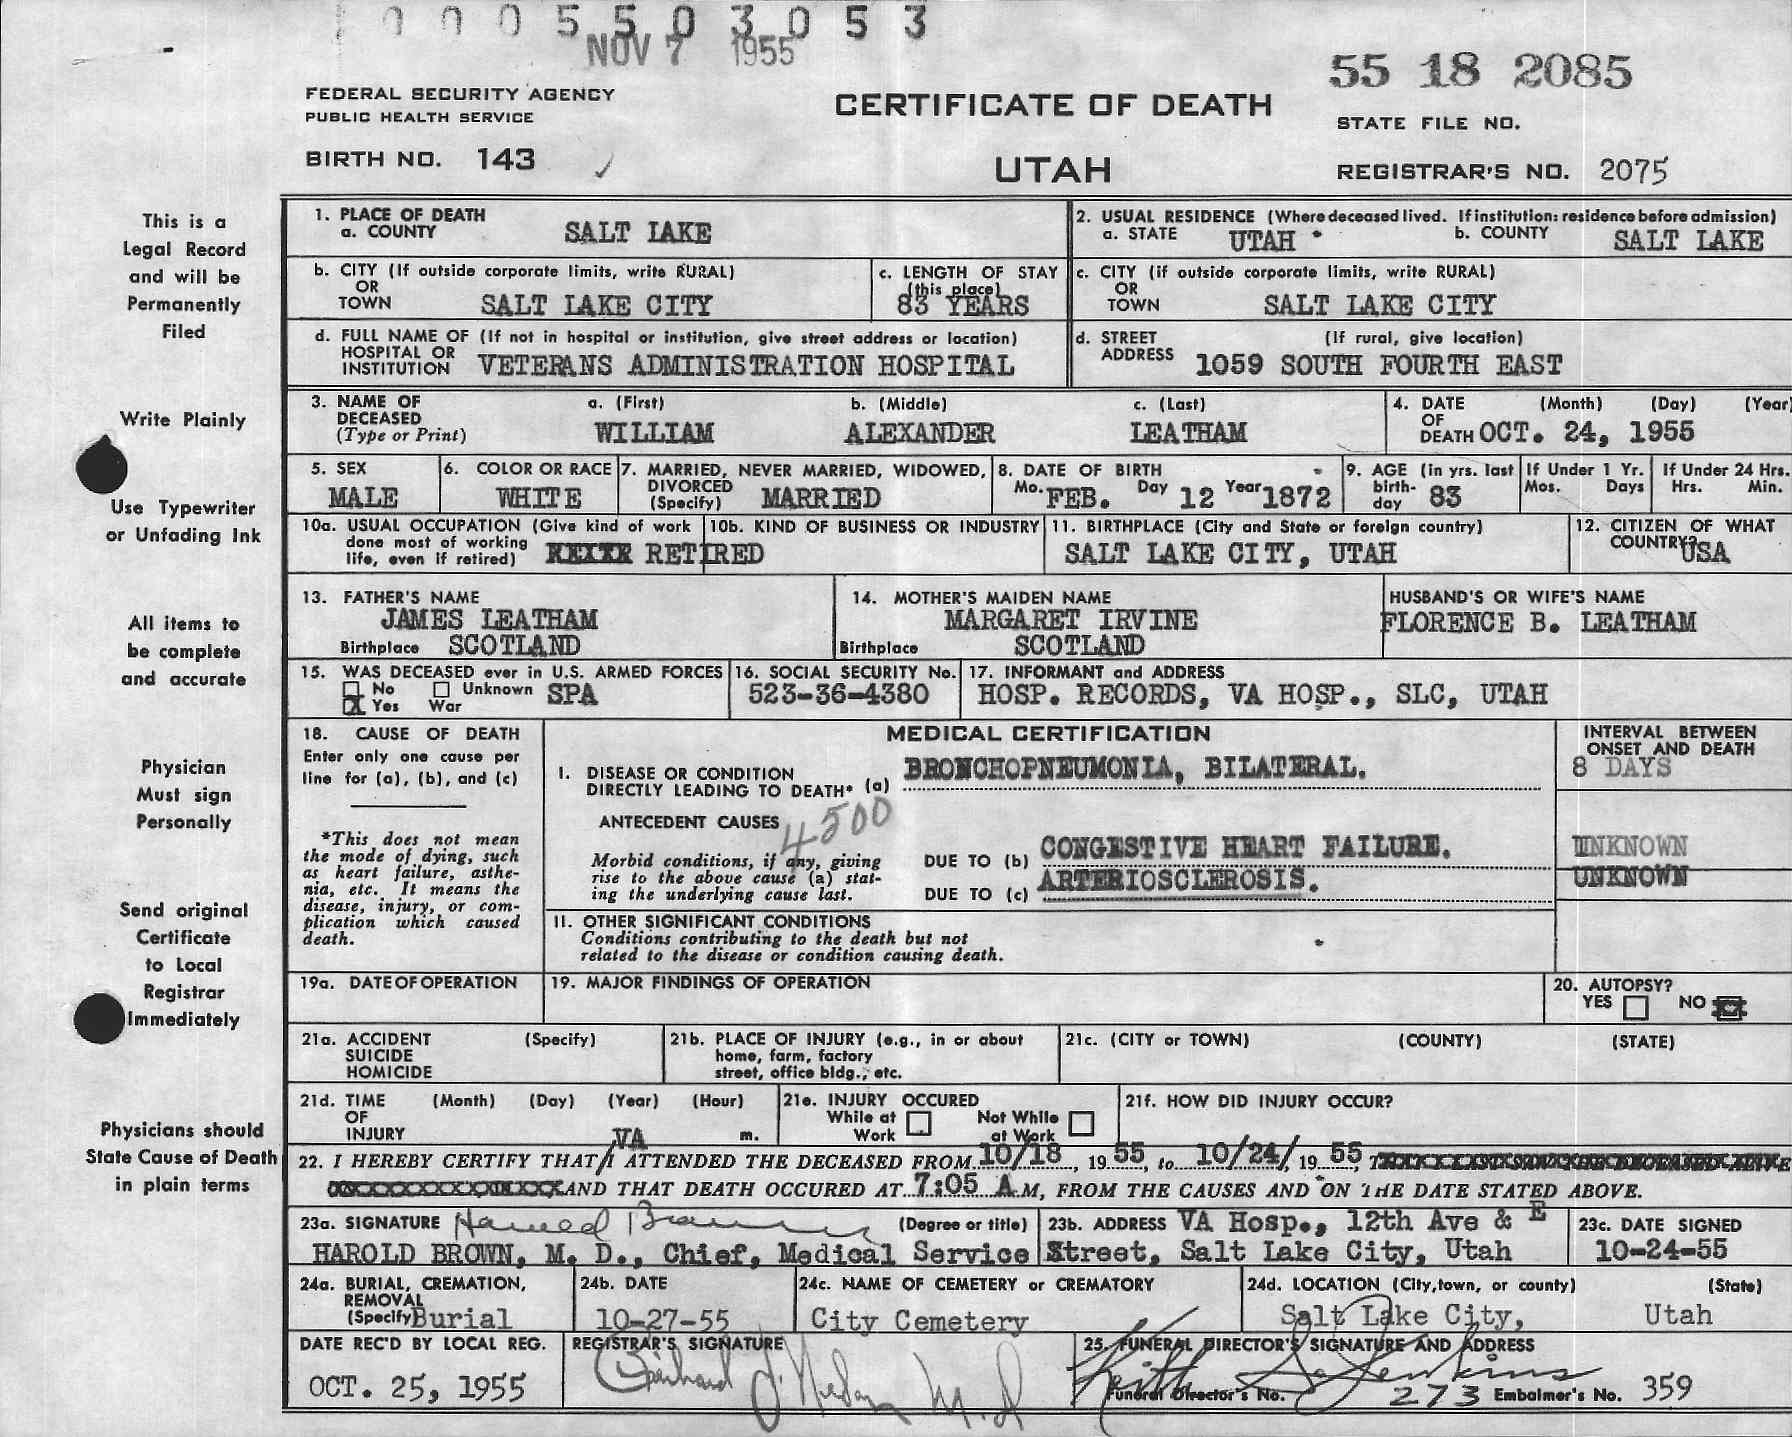 0005503053
NOV 7 1955
55 18 2085
FEDERAL SECURITY AGENCY
PUBLIC HEALTH SERVICE
CERTIFICATE OF DEATH
STATE FILE NO.
BIRTH NO. 143
UTAH
REGISTRAR'S NO. 2075
This is a
Legal Record
and will be
Permanently
Filed
Write Plainly
Use Typewriter
or Unfading Ink
All items to
be complete
and accurate
Physician
Must sign
Personally
Send original
Certificate
to Local
Registrar
Immediately
Physicians should
State Cause of Death
in plain terms
1. PLACE OF DEATH
a. COUNTY SALT LAKE
2. USUAL RESIDENCE (Where deceased lived. If institution: residence before admission)
a. STATE UTAH b. COUNTY SALT LAKE
b. CITY (If outside corporate limits, write RURAL)
OR
TOWN SALT LAKE CITY
c. LENGTH OF STAY
(this place)
83 YEARS
c. CITY (if outside corporate limits, write RURAL)
OR
TOWN SALT LAKE CITY
d. FULL NAME OF (If not in hospital or institution, give street address or location)
HOSPITAL OR
INSTITUTION VETERANS ADMINISTRATION HOSPITAL
d. STREET (If rural, give location)
ADDRESS 1059 SOUTH FOURTH EAST
3. NAME OF DECEASED (Type or Print)
a. (First) b. (Middle) c. (Last)
WILLIAM ALEXANDER LEATHAM
4. DATE (Month) (Day) (Year)
OF
DEATH OCT. 24, 1955
5. SEX
MALE
6. COLOR OR RACE
WHITE
7. MARRIED, NEVER MARRIED, WIDOWED,
DIVORCED
(Specify) MARRIED
8. DATE OF BIRTH
Mo. FEB. Day 12 Year 1872
9. AGE (in yrs. last
birth-
day 83
If Under 1 Yr.
Mos. Days
If Under 24 Hrs.
Hrs. Min.
10a. USUAL OCCUPATION (Give kind of work
done most of working
life, even if retired) RETIRED
10b. KIND OF BUSINESS OR INDUSTRY
11. BIRTHPLACE (City and State or foreign country)
SALT LAKE CITY, UTAH
12. CITIZEN OF WHAT
COUNTRY? USA
13. FATHER'S NAME
JAMES LEATHAM
Birthplace SCOTLAND
14. MOTHER'S MAIDEN NAME
MARGARET IRVINE
Birthplace SCOTLAND
HUSBAND'S OR WIFE'S NAME
FLORENCE B. LEATHAM
15. WAS DECEASED ever in U.S. ARMED FORCES
No Unknown SPA
X Yes War
16. SOCIAL SECURITY No.
523-36-4380
17. INFORMANT and ADDRESS
HOSP. RECORDS, VA HOSP., SLC, UTAH
18. CAUSE OF DEATH
Enter only one cause per
line for (a), (b), and (c)
*This does not mean
the mode of dying, such
as heart failure, asthe-
nia, etc. It means the
disease, injury, or com-
plication which caused
death.
MEDICAL CERTIFICATION
INTERVAL BETWEEN
ONSET AND DEATH
I. DISEASE OR CONDITION
DIRECTLY LEADING TO DEATH* (a) BRONCHOPNEUMONIA, BILATERAL.
8 DAYS
ANTECEDENT CAUSES 4500
Morbid conditions, if any, giving
rise to the above cause (a) stat-
ing the underlying cause last.
DUE TO (b) CONGESTIVE HEART FAILURE. UNKNOWN
DUE TO (c) ARTERIOSCLEROSIS. UNKNOWN
II. OTHER SIGNIFICANT CONDITIONS
Conditions contributing to the death but not
related to the disease or condition causing death.
19a. DATE OF OPERATION
19. MAJOR FINDINGS OF OPERATION
20. AUTOPSY?
YES NO
21a. ACCIDENT (Specify)
SUICIDE
HOMICIDE
21b. PLACE OF INJURY (e.g., in or about
home, farm, factory
street, office bldg., etc.
21c. (CITY or TOWN) (COUNTY) (STATE)
21d. TIME (Month) (Day) (Year) (Hour)
OF
INJURY m.
21e. INJURY OCCURED
While at Work Not While at Work
21f. HOW DID INJURY OCCUR?
VA
22. I HEREBY CERTIFY THAT/I ATTENDED THE DECEASED FROM 10/18, 1955, to 10/24/, 1955,
AND THAT DEATH OCCURED AT 7:05 A.M, FROM THE CAUSES AND ON THE DATE STATED ABOVE.
23a. SIGNATURE Harold Brown (Degree or title)
HAROLD BROWN, M. D., Chief, Medical Service
23b. ADDRESS VA Hosp., 12th Ave & E
Street, Salt Lake City, Utah
23c. DATE SIGNED
10-24-55
24a. BURIAL, CREMATION,
REMOVAL
(Specify) Burial
24b. DATE
10-27-55
24c. NAME OF CEMETERY or CREMATORY
City Cemetery
24d. LOCATION (City, town, or county) (State)
Salt Lake City, Utah
DATE REC'D BY LOCAL REG.
OCT. 25, 1955
REGISTRAR'S SIGNATURE
M.D
25. FUNERAL DIRECTOR'S SIGNATURE AND ADDRESS
Keith S. Jenkins
Funeral Director's No. 273 Embalmer's No. 359